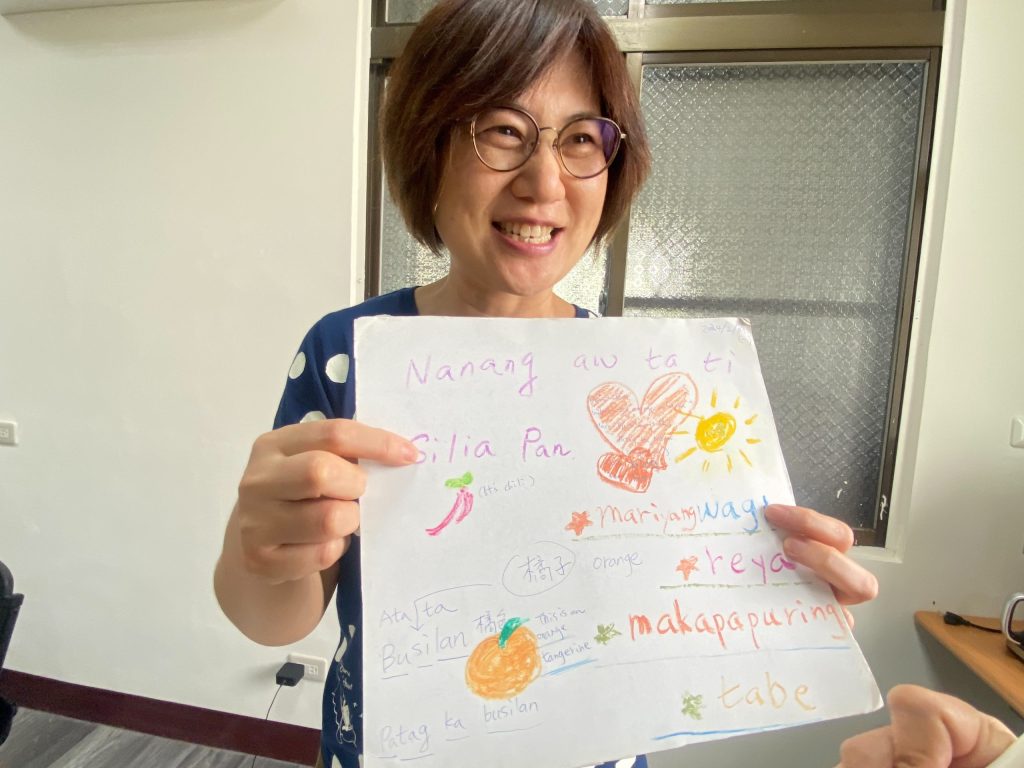 Nanang aw ta ti
Silia Pan.
(It's chili)
mariyang wag
橘子 orange
reya
Ata ta
Busilan 橘色 This is an
orange
tangerine
makapapuring
tabe
Patag ka busilan